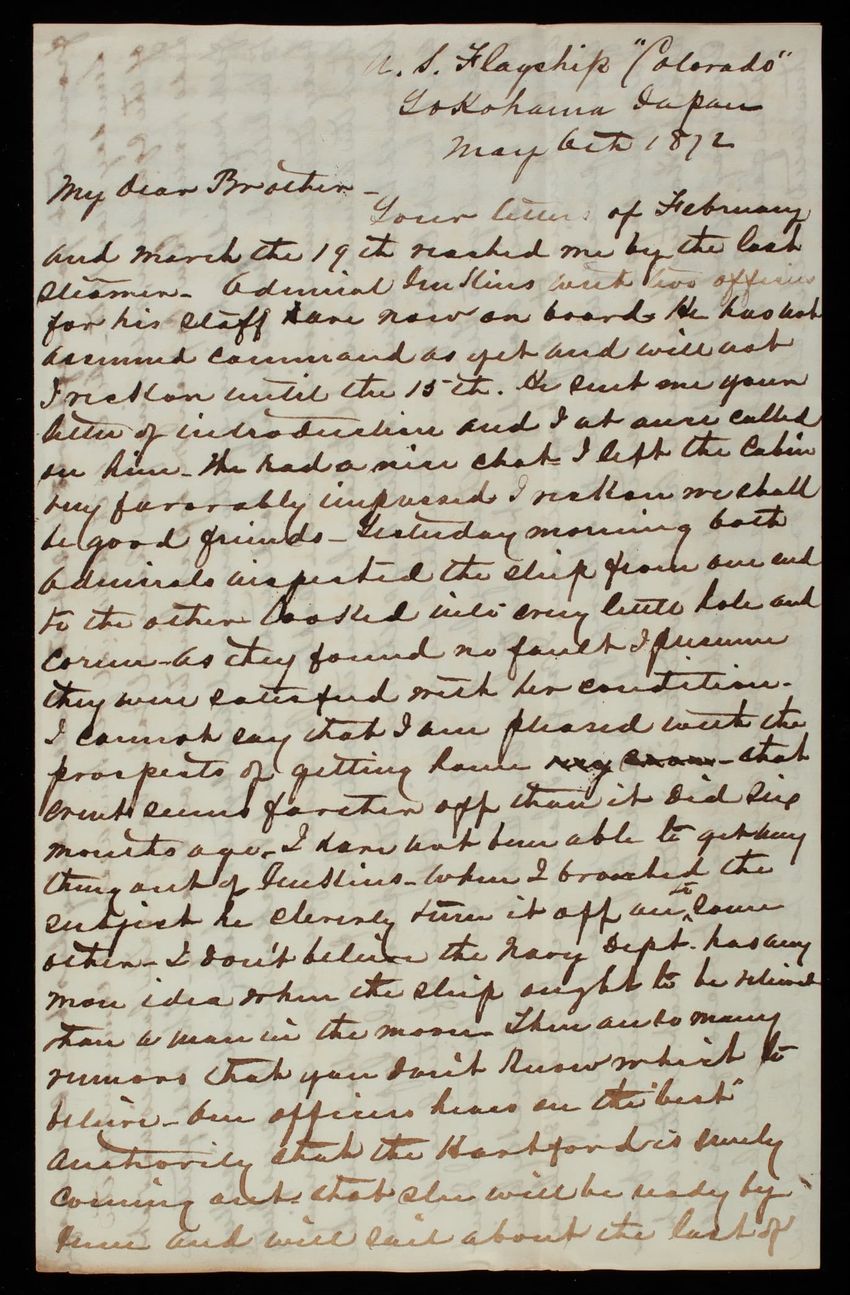 U. S. Flagship "Colorado"
Yokohama Japan
May 6th 1872
My Dear Brother -
Your letters of February
and March the 19th reached me by the last
steamer - Admiral Jenkins with two officers
for his staff are now on board. He has not
assumed command as yet and will not
I reckon until the 15th. He sent me your
letter of introduction and I at once called
on him - We had a nice chat - I left the Cabin
very favorably impressed I reckon we shall
be good friends - Yesterday morning both
Admirals inspected the ship from one end
to the other looked into every little hole and
corner - As they found no fault I presume
they were satisfied with her condition -
I cannot say that I am pleased with the
prospects of getting home - that
event seems farther off than it did six
months ago - I have not been able to get any
thing out of Jenkins - When I broached the
subject he cleverly turn it off onto some
other - I don't believe the Navy Dept. has any
more idea when the ship ought to be relieved
than a man in the moon - There are so many
rumors that you don't know which to
believe - One officer hears on the "best"
authority that the Hartford is surely
coming out - that she will be ready by
June and will sail about the last of